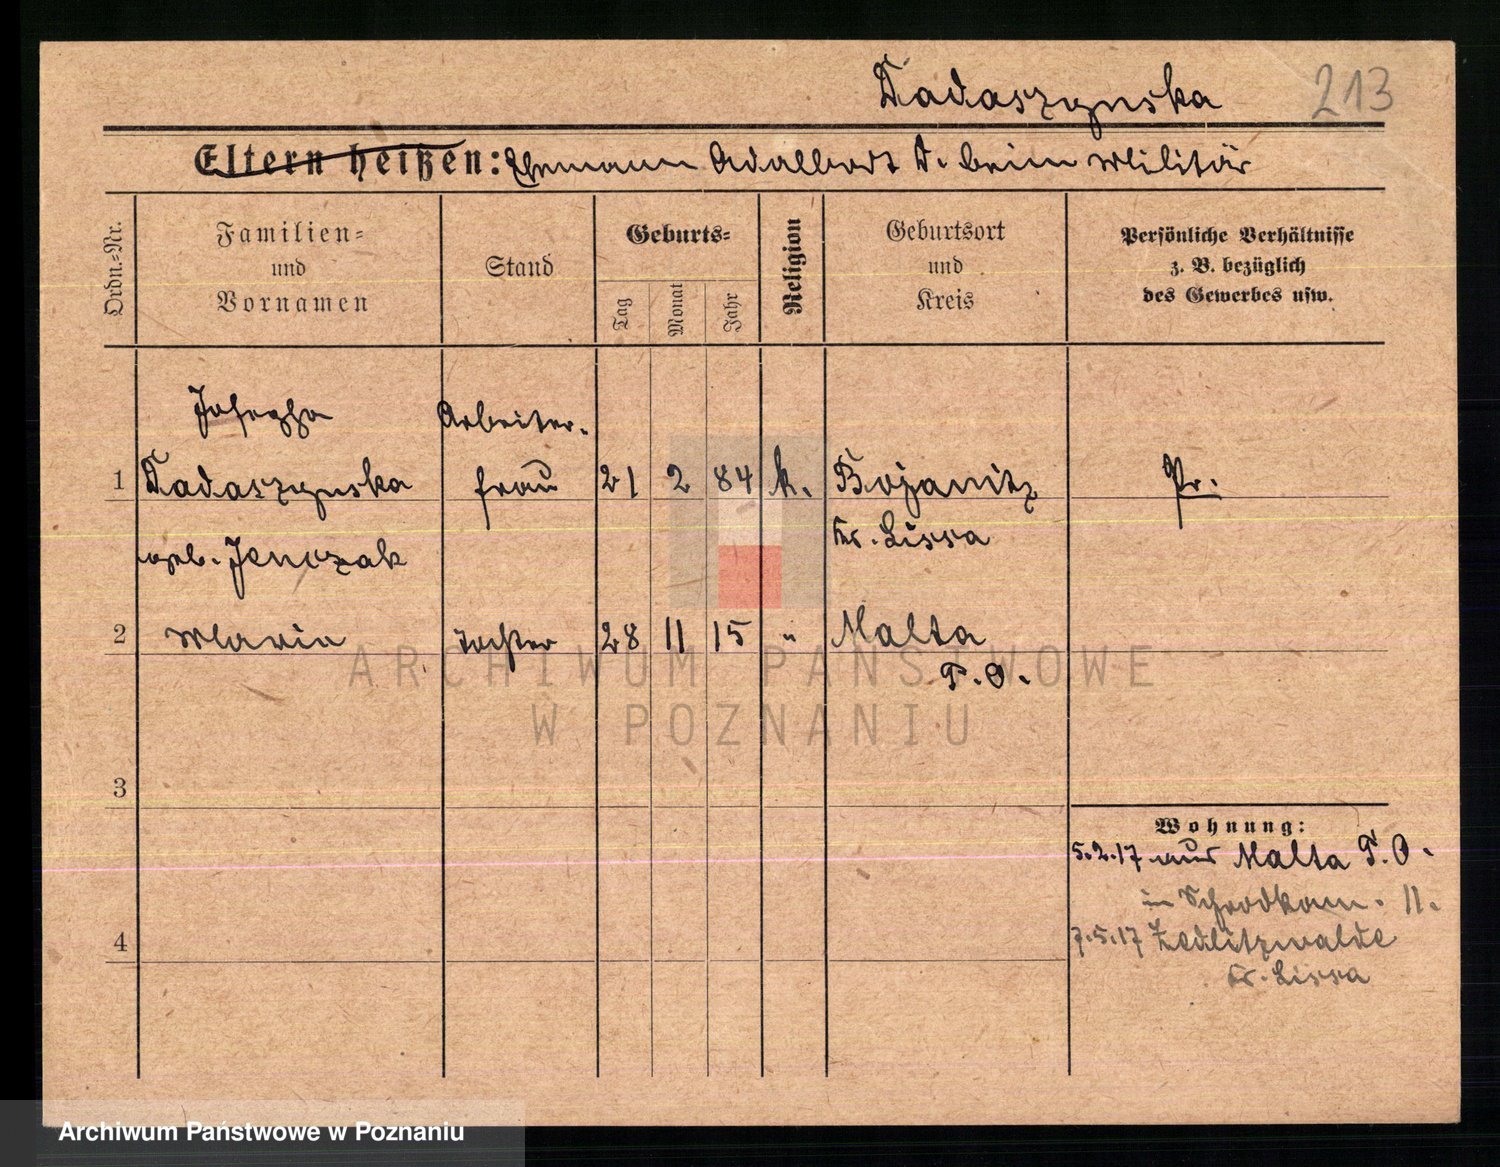 Tadaszynska 213
Eltern heißen: Ehemann Adalbert T. beim Militär
Ordn.-Nr.
Familien-
und
Vornamen
Stand
Geburts-
Tag
Monat
Jahr
Religion
Geburtsort
und
Kreis
Persönliche Verhältnisse
z. B. bezüglich
des Gewerbes usw.
Josepha Arbeiter-
1 Tadaszynska frau 21 2 84 k. Bojanitz Pr.
geb. Jenczak Kr. Lissa
2 Maria Tochter 28 11 15 " Malta
P. O.
3
Wohnung:
5.2.17 aus Malta P. O.
in 11.
4 7.5.17 Zedlitzwalde
Kr. Lissa
ARCHIWUM PAŃSTWOWE
W POZNANIU
Archiwum Państwowe w Poznaniu